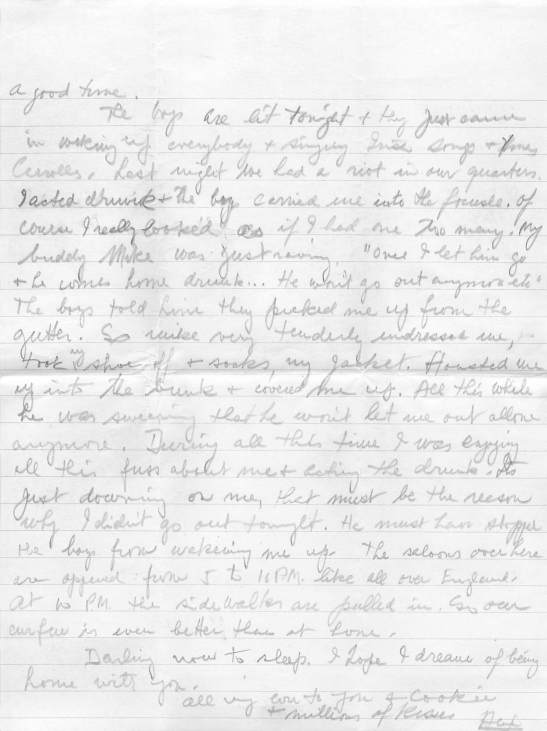 a good time.
The boys are lit tonight & they just came
in waking up everybody & singing Irish songs & Xmas
Carrolls. Last night we had a riot in our quarters.
I acted drunk & the boys carried me into the house. Of
course I really looked as if I had one too many. My
buddy Mike was just raving. "Once I let him go
& he comes home drunk... He won't go out anymore etc"
The boys told him they picked me up from the
gutter. So mike very tenderly undressed me,
took my shoe off & socks, my jacket. Hoisted me
up into the bunk & covered me up. All this while
he was swearing that he won't let me out allone
anymore. During all this time I was enjoying
all this fuss about me & acting the drunk. Its
just downing on me, that must be the reason
why I didn't go out tonight. He must have stopped
the boys from wakening me up. The saloons over here
are opened from 5 to 10 PM. like all over England.
At 10 PM the sidewalks are pulled in. So our
curfew is even better than at home.
Darling now to sleep. I hope I dream of being
home with you.
all my love to you & Cookie
& millions of Kisses